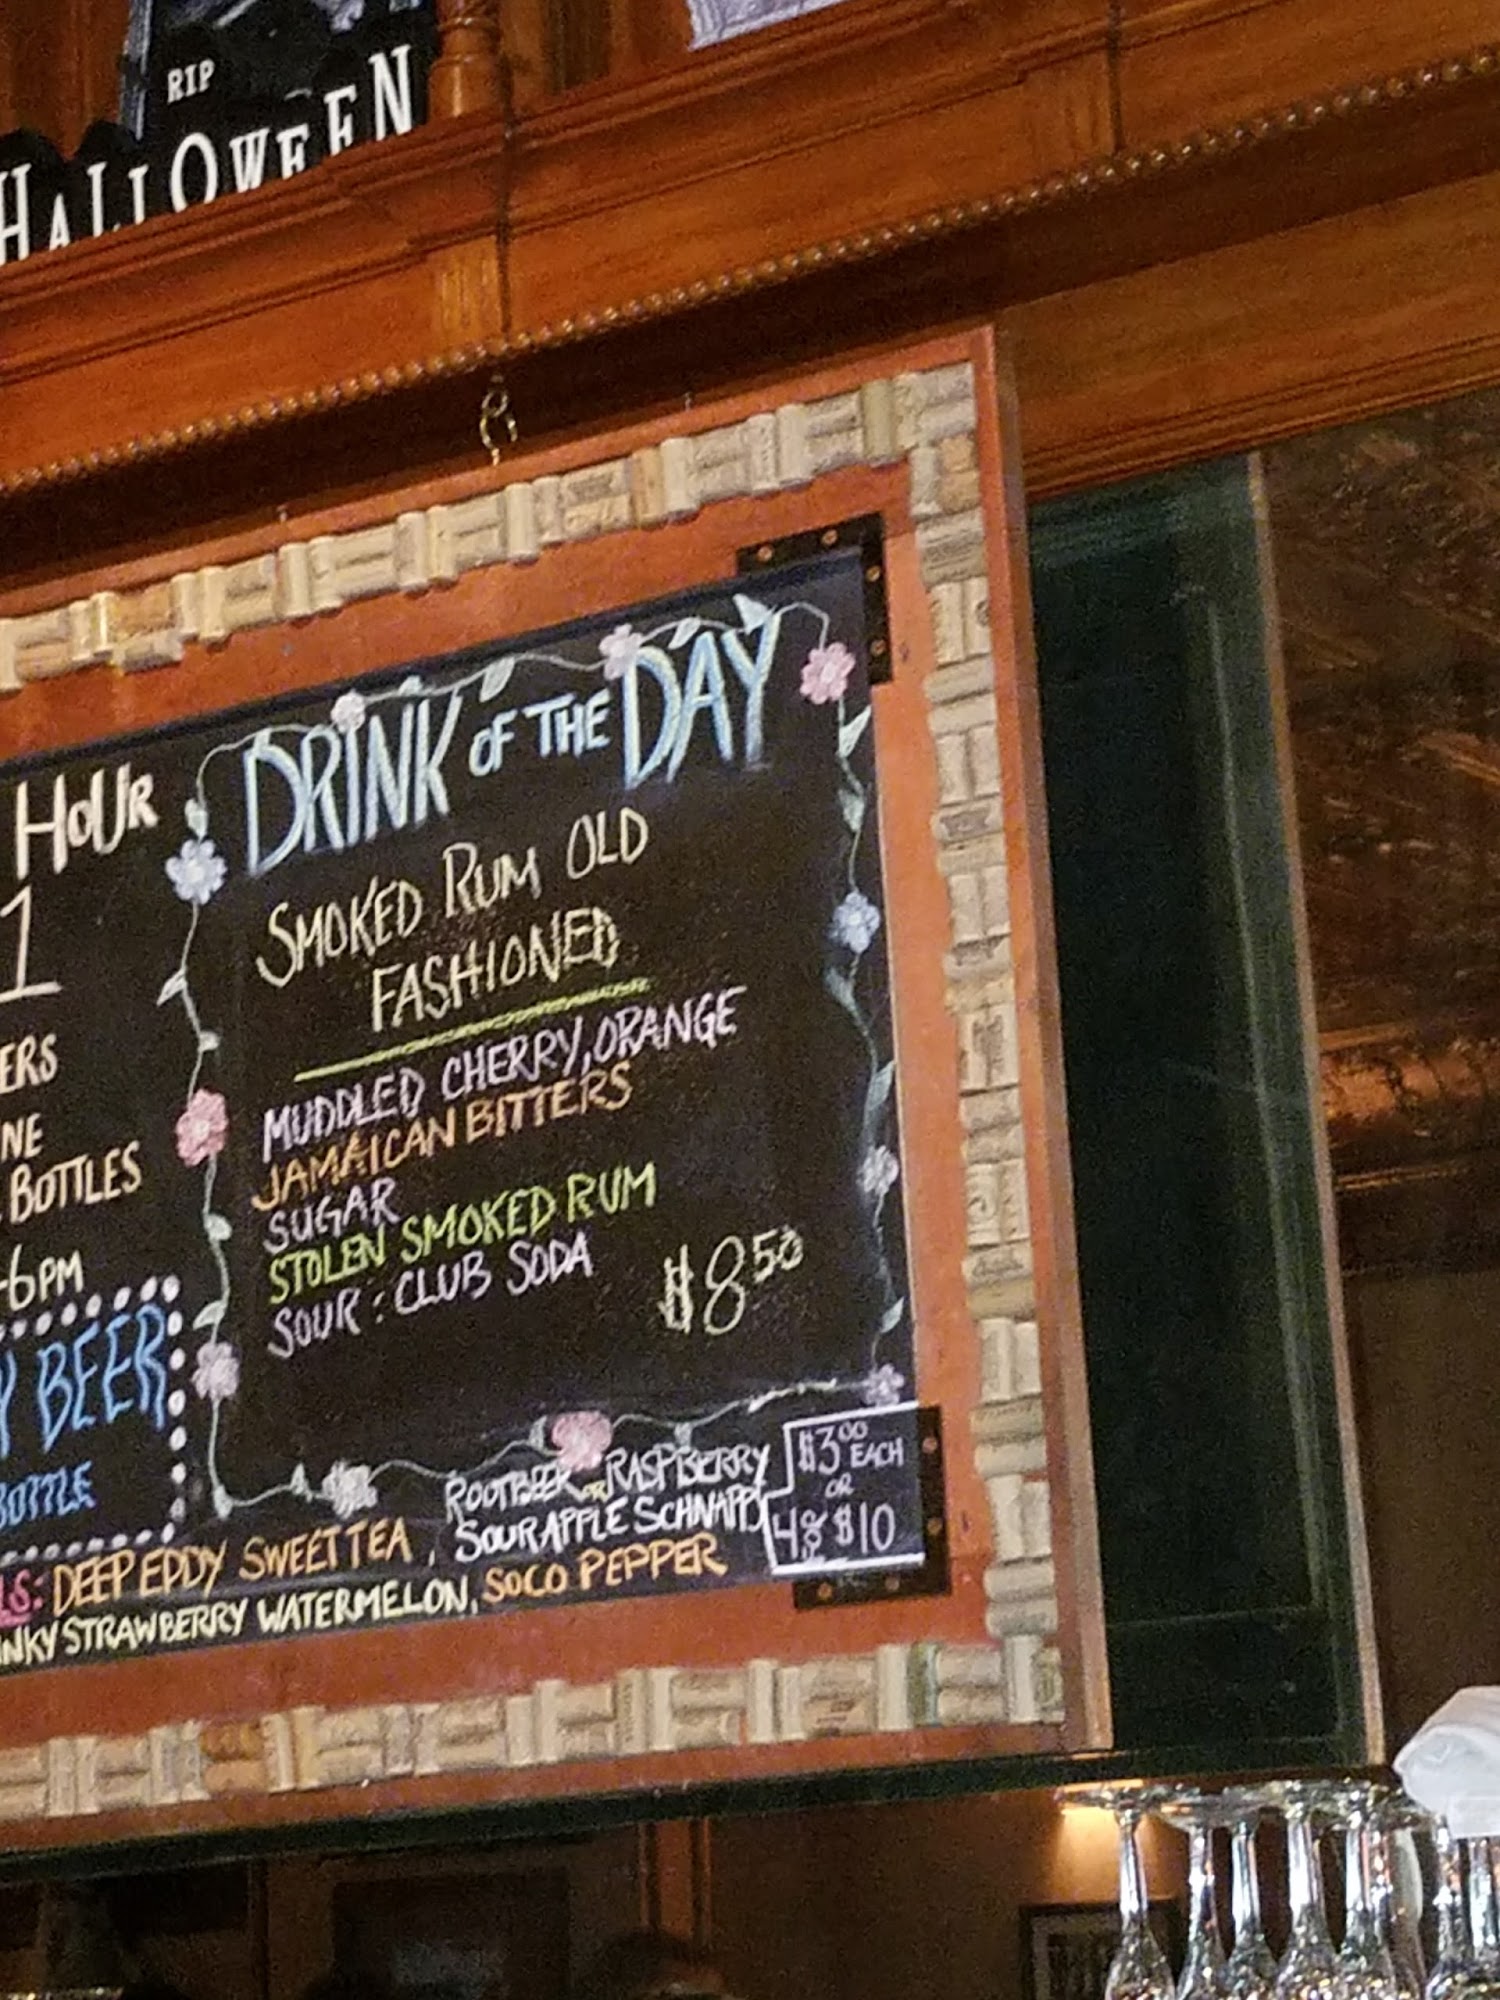 RIP
HALLOWEEN
HOUR
1
ERS
NE
BOTTLES
-6PM
Y BEER
BOTTLE
DRINK OF THE DAY
SMOKED RUM OLD
FASHIONED
MUDDLED CHERRY, ORANGE
JAMAICAN BITTERS
SUGAR
STOLEN SMOKED RUM
SOUR: CLUB SODA
$8 50
ROOTBEER OR RASPBERRY
SOUR APPLE SCHNAPPS
$3 00 EACH
OR
4 for $10
LS: DEEP EDDY SWEET TEA,
INKY STRAWBERRY WATERMELON, SOCO PEPPER